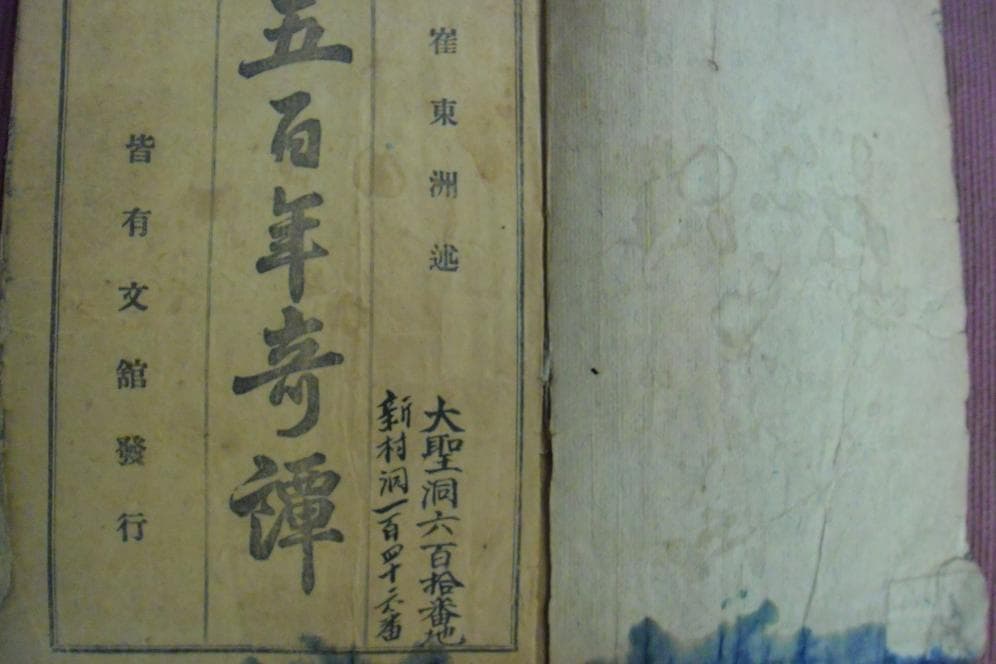 崔東洲述
大聖洞六百拾番地
新村洞一百四十六番
五百年奇譚
皆有文舘發行